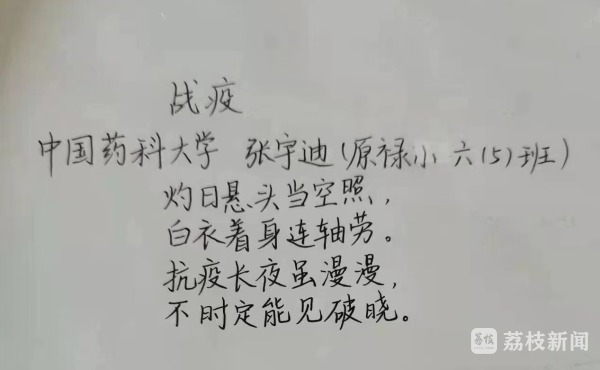 战疫
中国药科大学 张宇迪（原禄小 六（5）班）
灼日悬头当空照，
白衣着身连轴劳。
抗疫长夜虽漫漫，
不时定能见破晓。
荔枝 荔枝新闻